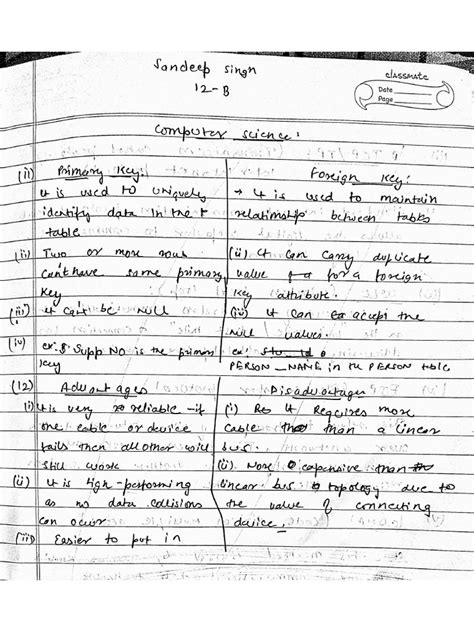 Sandeep Singh
12-B
classmate
Date
Page
Computer science:
(11) Primary Key: Foreign Key:
It is used to Uniquely → It is used to maintain
identify data in the relationship between tables
table
(ii) Two or more rows (ii) It can carry duplicate
can't have same primary value for a foreign
Key Key attribute.
(iii) it can't be Null (iii) It can accept the
NULL values.
(iv) ex: Supp NO is the primary ex:
Key PERSON_NAME in the PERSON table
(12) Advantages Disadvantages
(i) it is very reliable - if (i) It Requires more
one cable or device cable than a linear
fails then all other will bus.
still work (ii) More expensive than
(ii) It is High-performing linear bus topology due to
as no data collisions the value of connecting
can occur device
(iii) Easier to put in